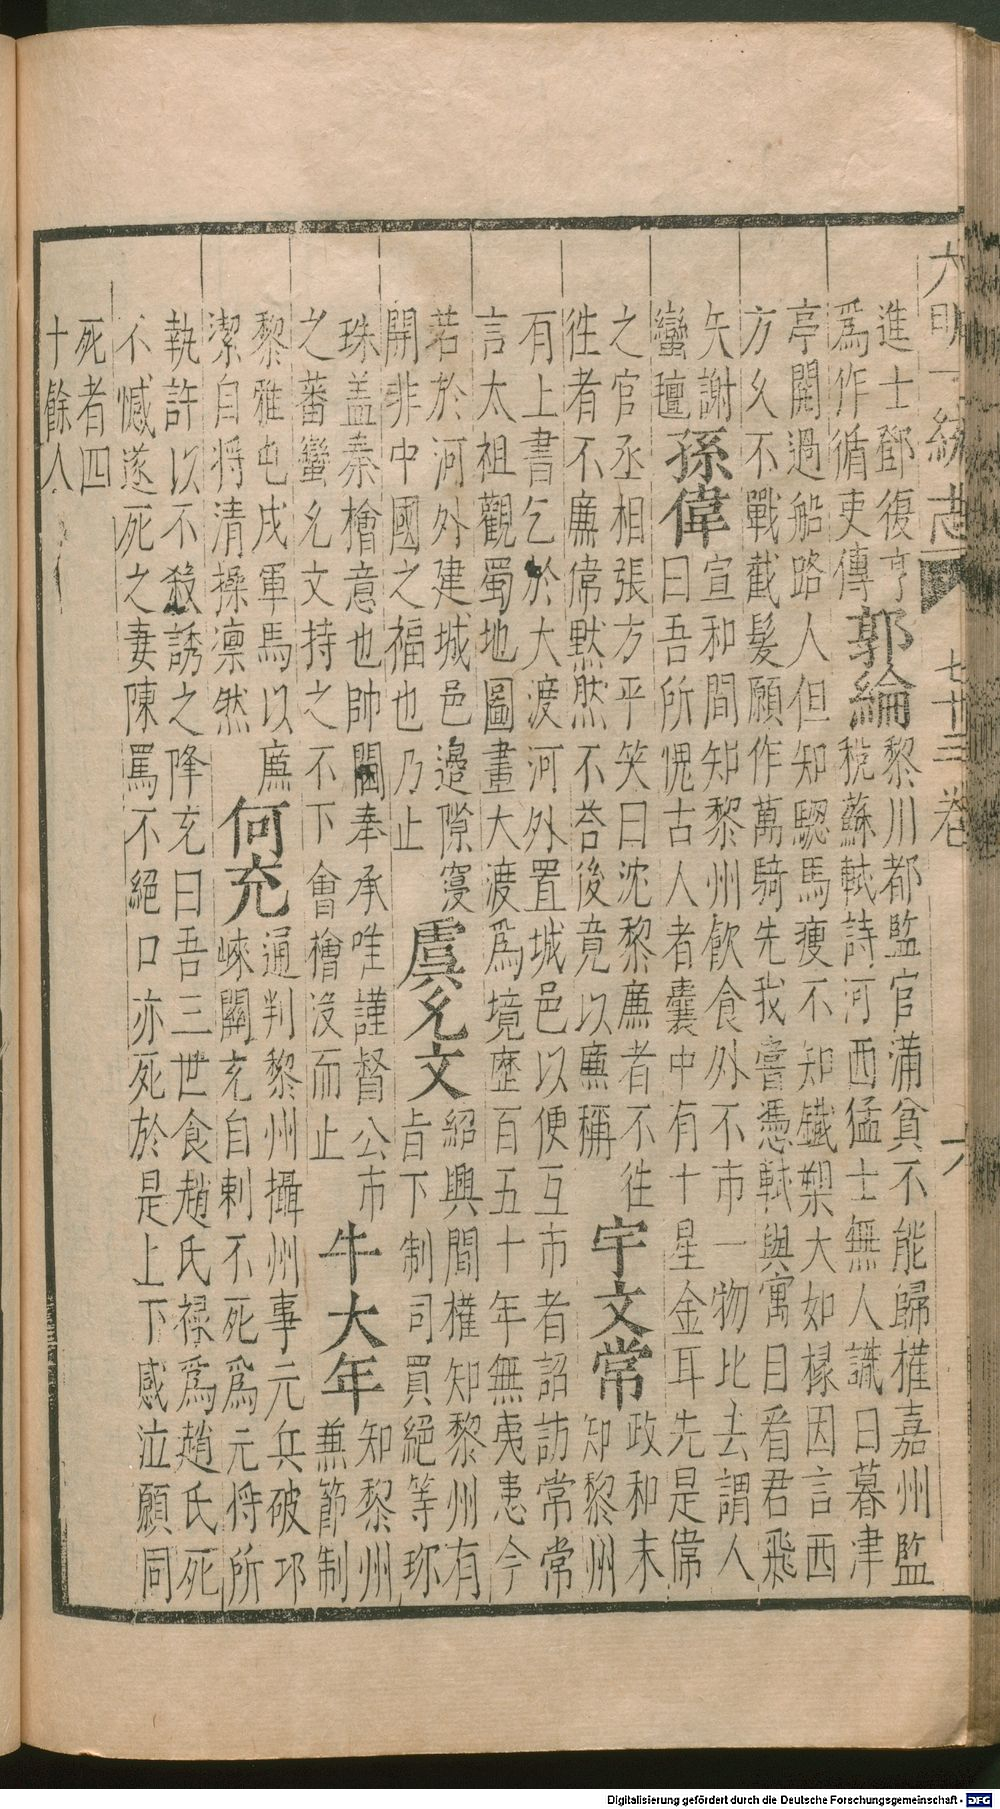 大明一統志 七十三卷
進士鄧復亨
爲作循吏傳
郭綸
黎川都監官滿貧不能歸權嘉州監
稅蘇軾詩河西猛士無人識日暮津
亭閱過船路人但知驄馬瘦不知鐵槊大如椽因言西
方久不戰截髮願作萬騎先我嘗憑軾與寓目看君飛
矢謝
蠻氊
孫偉
宣和間知黎州飲食外不市一物比去謂人
曰吾所愧古人者囊中有十星金耳先是偉
之官丞相張方平笑曰沈黎廉者不往
往者不廉偉默然不荅後竟以廉稱
宇文常
政和末
知黎州
有上書乞於大渡河外置城邑以便互市者詔訪常常
言太祖觀蜀地圖畫大渡爲境歷百五十年無夷患今
若於河外建城邑邉隙寖
開非中國之福也乃止
虞允文
紹興間權知黎州有
旨下制司買絕等珎
珠盖秦檜意也帥閫奉承唯謹督公市
之蕃蠻允文持之不下會檜沒而止
牛大年
知黎州
兼節制
黎雅屯戍軍馬以廉
潔自將清操凛然
何充
通判黎州攝州事元兵破邛
崍關充自刺不死爲元將所
執許以不殺誘之降充曰吾三世食趙氏祿爲趙氏死
不憾遂死之妻陳罵不絕口亦死於是上下感泣願同
死者四
十餘人
Digitalisierung gefördert durch die Deutsche Forschungsgemeinschaft - DFG